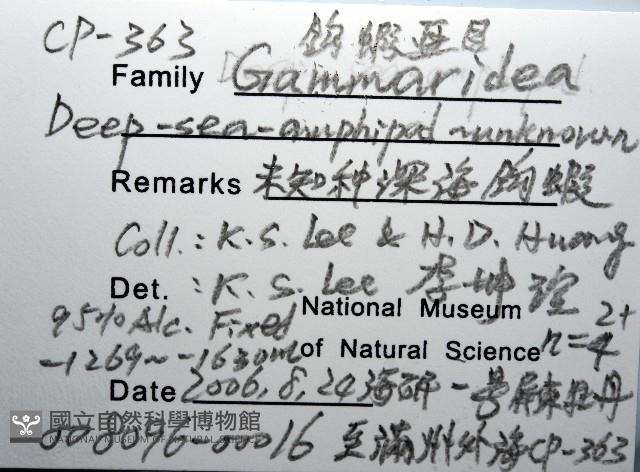 CP-363 鈎蝦亞目
Family Gammaridea
Deep-sea-amphipod-unknown
Remarks 未知种深海鈎蝦
Coll.: K.S. Lee & H.D. Huang
Det. : K.S. Lee 李坤瑄
National Museum 2+
95% Alc. Fixed
of Natural Science n=4
-1269~-1630m
Date 2006,8,24 海研一号屏東牡丹
國立自然科學博物館
NATIONAL MUSEUM OF NATURAL SCIENCE
16 至滿州外海CP-363